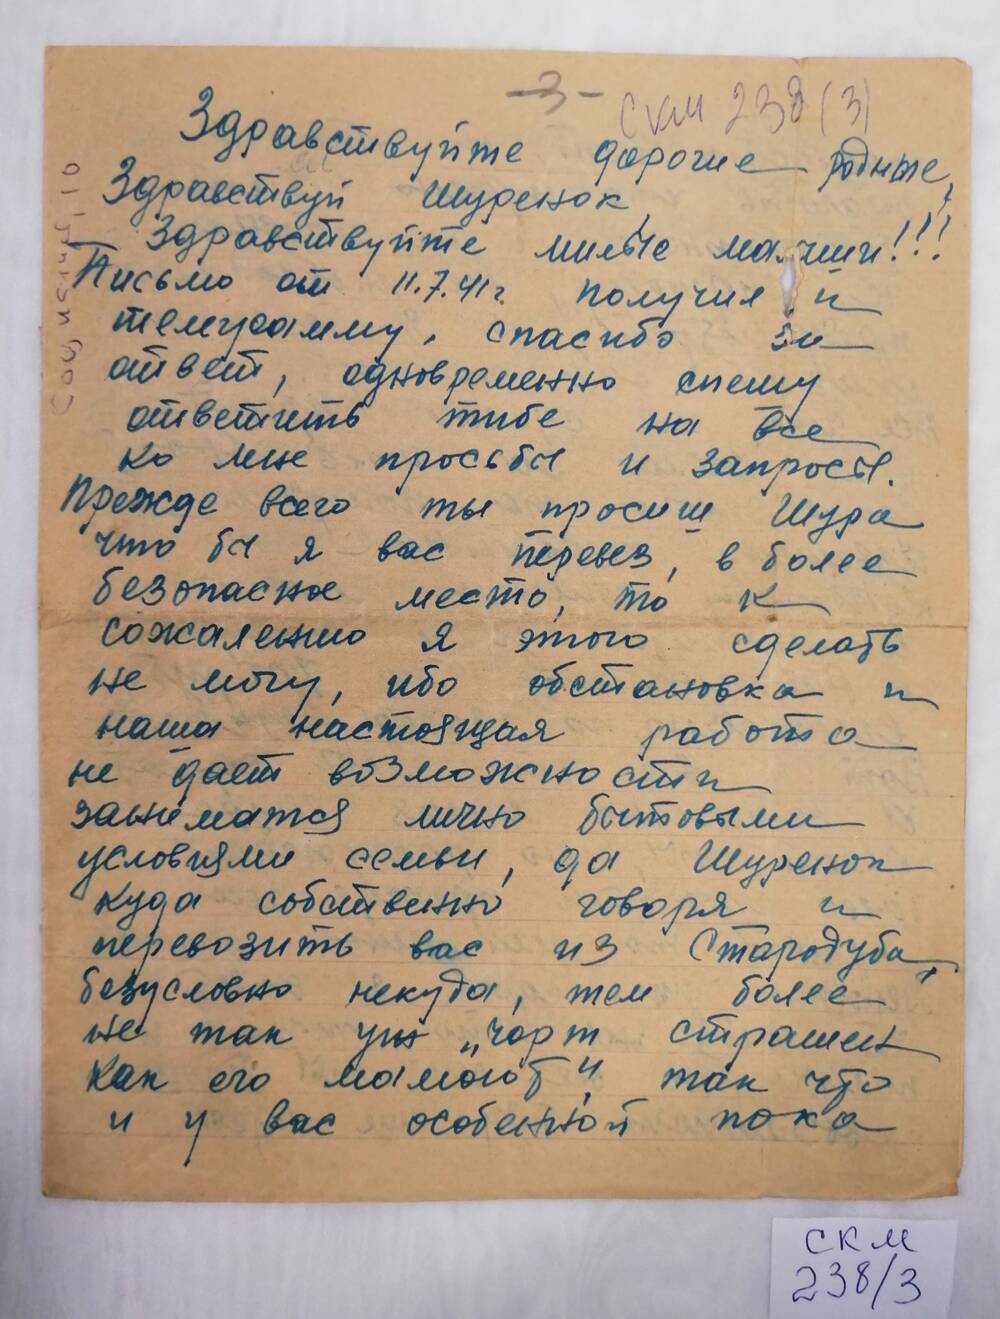 -3-
СКМ 238 (3)
Здравствуйте дорогие родные,
Здравствуй Шуренок,
Здравствуйте милые малчики!!!
Письмо от 11.7.41г. получил и
телеграмму, спасибо за
ответ, одновременно спешу
ответить тибе на все
ко мне просьбы и запросы.
Прежде всего ты просиш Шура
что бы я вас перевез, в более
безопасное место, то к
сожалению я этого сделать
не могу, ибо обстановка и
наша настоящая работа
не дает возможности
заниматся лично бытовыми
условиями семьи, да Шуренок
куда собственно говоря и
перевозить вас из Стародуба
безусловно некуда, тем более
не так уж „чорт страшен
как его малюют" так что
и у вас особенной пока
СКМ
238/3